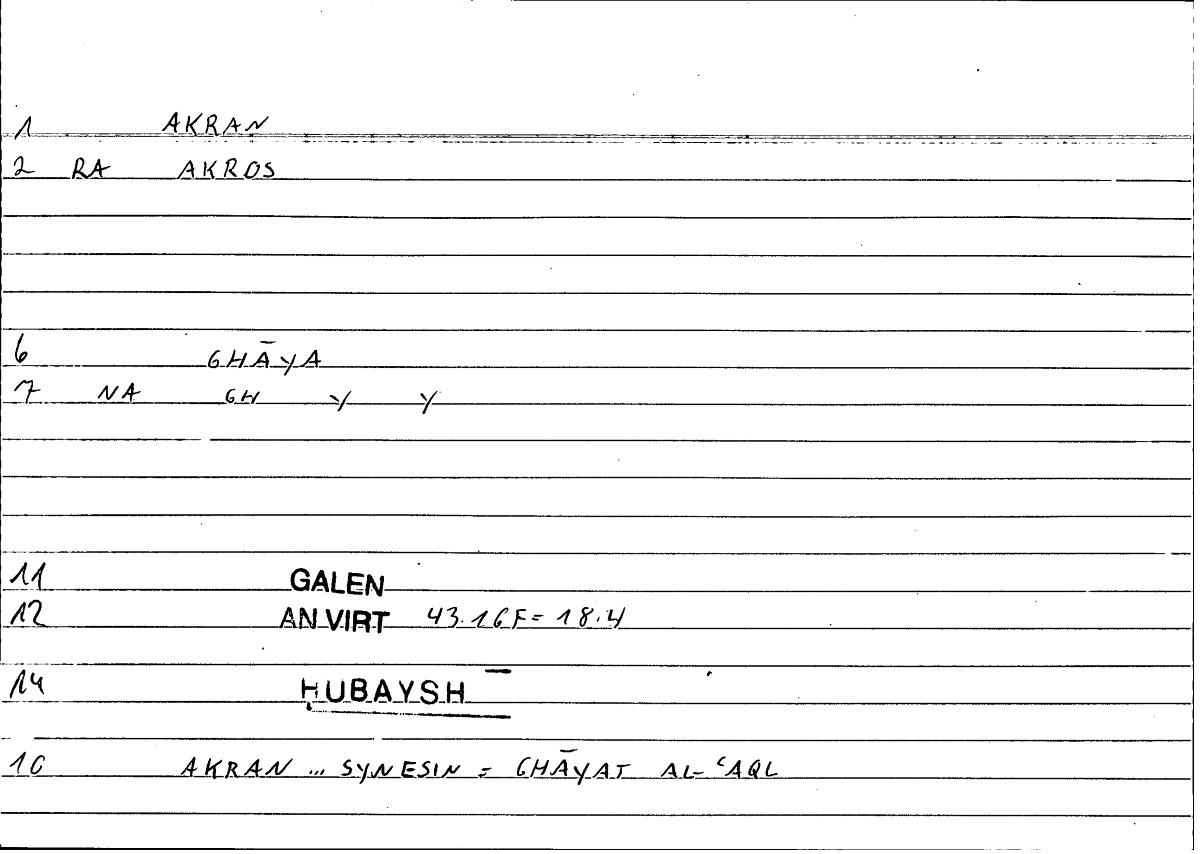 1 AKRAN
2 RA AKROS
6 GHĀYA
7 NA GH Y Y
11 GALEN
12 AN VIRT 43.16F = 18.4
14 ḤUBAYSH
16 AKRAN ... SYNESIN = GHĀYAT AL-ʿAQL